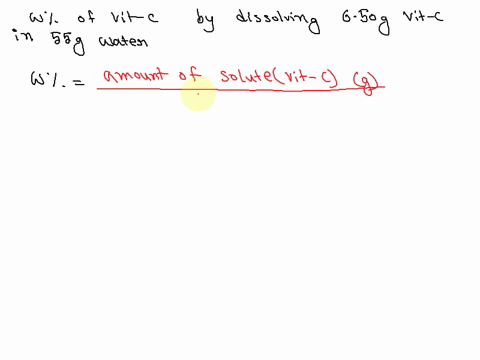 w% of vit-c by dissolving 6.50g vit-c
in 55g water
w% = amount of solute(vit-c) (g)